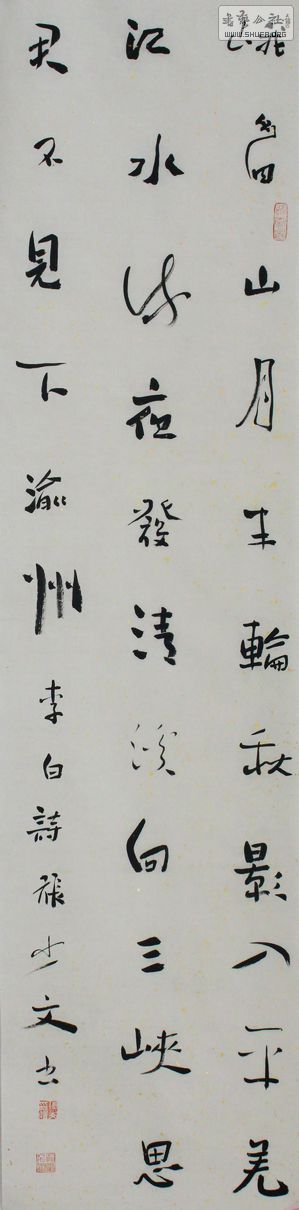 峨眉山月半輪秋影入平羌
江水流夜發清溪向三峽思
君不見下渝州
李白詩張少文书
WWW.SHUFA.ORG